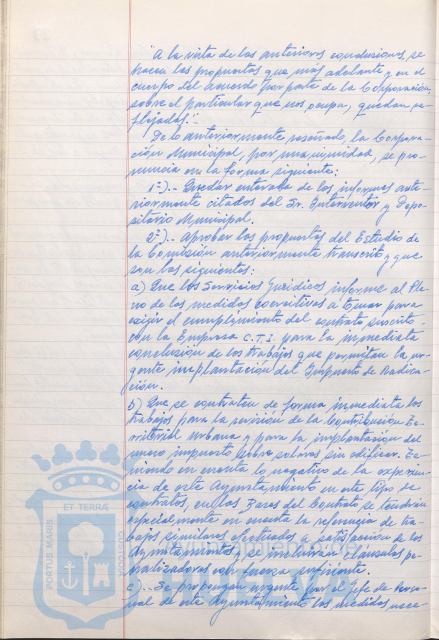 "A la vista de las anteriores conclusiones, se
hacen las propuestas que más adelante y en el
cuerpo del acuerdo por parte de la Corporación,
sobre el particular que nos ocupa, quedan re-
flejadas."
De lo anteriormente reseñado, la Corpora-
ción Municipal, por unanimidad, se pro-
nuncia en la forma siguiente:
1º).- Quedar enterada de los informes ante-
riormente citados del Sr. Interventor y Depo-
sitario Municipal.
2º).- Aprobar las propuestas del Estudio de
la Comisión anteriormente transcrito y que
son las siguientes:
a) Que los Servicios Jurídicos informe al Ple-
no de las medidas coercitivas a tomar para
exigir el cumplimiento del contrato suscrito
con la Empresa C.T.I. para la inmediata
conclusión de los trabajos que permitan la ur-
gente implantación del Impuesto de Radica-
ción.
b) Que se contraten de forma inmediata los
trabajos para la revisión de la Contribución Te-
rritorial urbana y para la implantación del
nuevo impuesto sobre solares sin edificar. Te-
niendo en cuenta lo negativo de la experien-
cia de este Ayuntamiento en este tipo de
contratos, en las Bases del Contrato se tendrán
especialmente en cuenta la referencia de tra-
bajos similares efectuados a satisfacción de los
Ayuntamientos, y se incluirán cláusulas pe-
nalizadoras con fuerza suficiente.
c).- Se propongan urgente por el Jefe de Perso-
nal de este Ayuntamiento las medidas nece-
PORTUS MARIS
ET TERRÆ
CUSTODIA